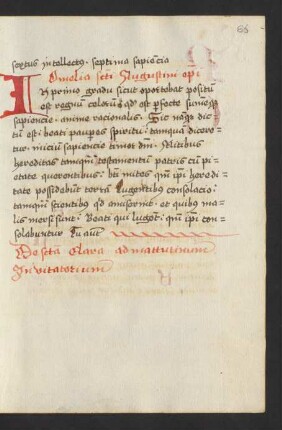 65
sextus intellectus septima sapiencia
Omelia scti Augustini epi
In primo gradu sicut oportebat positum
est regnum celorum qd est perfecte summeqz
sapiencie anime racionalis. Sic naqz dic
tum est: beati paupes spiritu: tamqua dicere
tur: inicium sapiencie timor dni. Mitibus
hereditas tamqm testamentum patris cum pi
etate querentibus: bti mites qm ipi heredi
tate possidebunt terra Lugentibus consolacio:
tamqm scientibus qd amiserint et quibus ma
lis mersi sint: Beati qui lugent: qm ipi con
solabuntur Tu autem
De scta Clara ad matutinum
Invitatorium